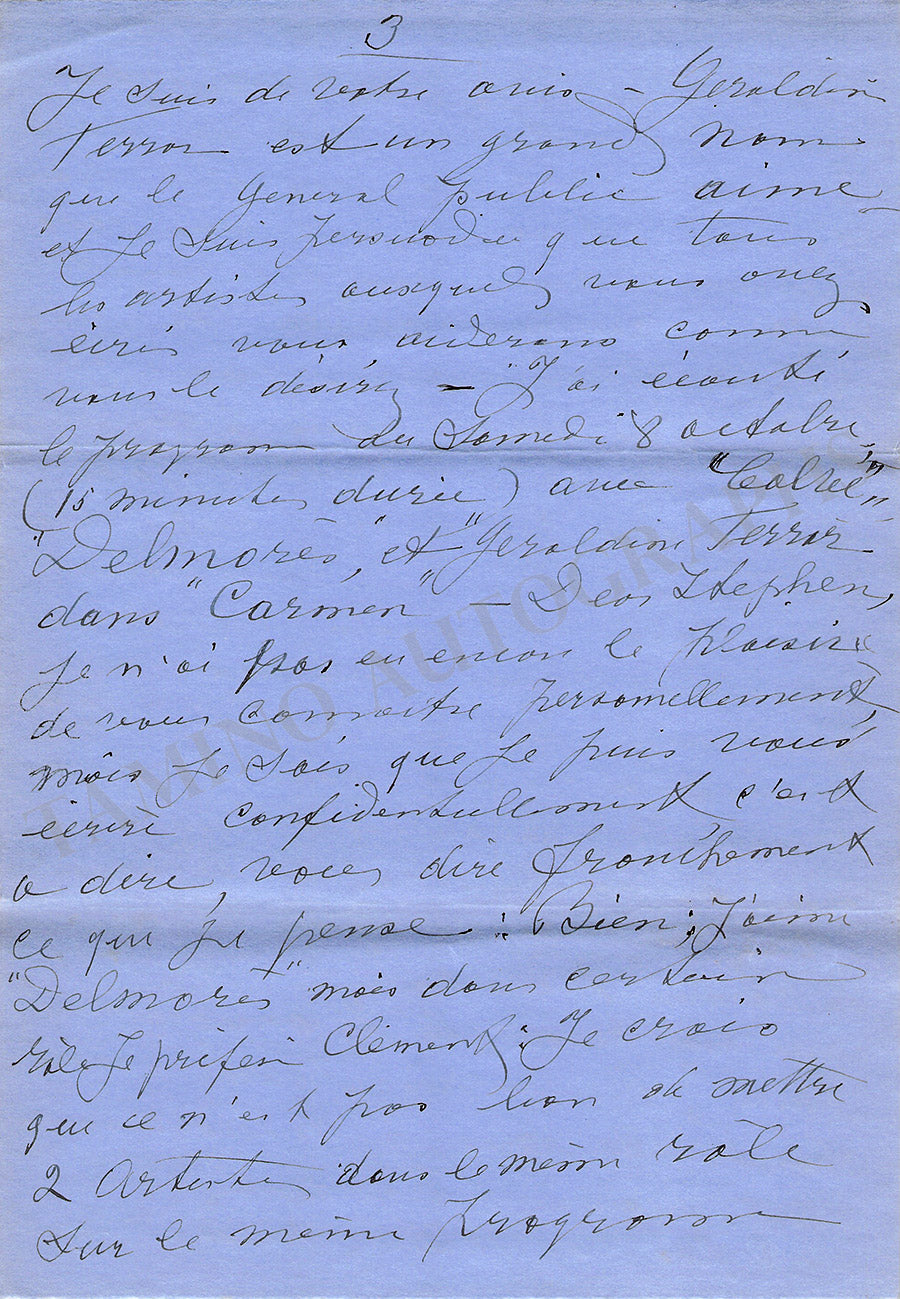 3
Je suis de votre avis – Geraldin
Ferrar est un grand nom
que le General public aime –
et Je suis persuadée que tous
les artistes auxquels vous avez
écris vous aiderons comme
vous le désirez – J'ai écouté
le program du Samedi 8 octobre,
(15 minutes durée) avec "Calvé",
"Delmorès", et "Geraldine Ferrar
dans "Carmen" – Dear Stephen,
Je n'ai pas eu encore le plaisir
de vous connaitre personellement,
mais Je sais que Je puis vous
écrire confidentiellement c'est
a dire, vous dire franchement
ce que Je pense : Bien; J'aime
"Delmorès" mais dans certain
rôle Je préfère Clément: Je crois
que ce n'est pas bon de mettre
2 Artistes dans le même rôle
sur le même programme
TAMINO AUTOGRAPHS